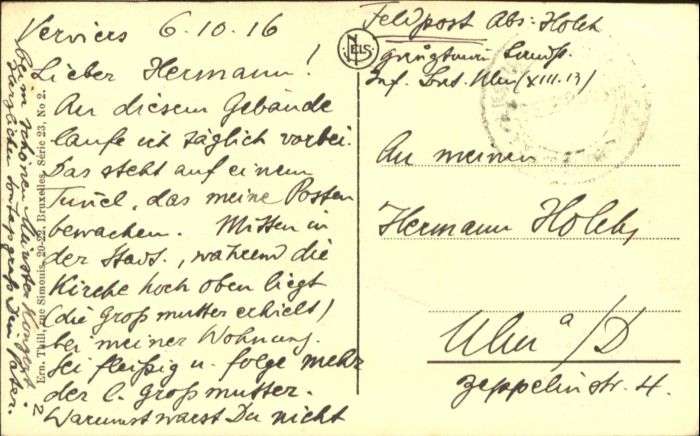 Verviers 6.10.16
Lieber Hermann!
An diesem Gebäude
laufe ich täglich vorbei.
Das steht auf einem
Tunel, das meine Posten
bewachen. Mitten in
der Stadt, während die
Kirche hoch oben liegt
(die Großmutter erhielt)
bei meiner Wohnung.
Sei fleißig u. folge mehr
der l. Großmutter.
Warum warst Du nicht
beim schönen Münster Konzert?
Herzlichen Sonntagsgruß Dein Vater.
2
Ern. Thill, rue Simonis, 20-22, Bruxelles. Série 23, No 2.
NELS
Feldpost Abs: Holch
Landst.
Inf. Bat. Ulm (XIII.13)
An meinen
Hermann Holch,
Ulm a/D
Zeppelinstr. 4.